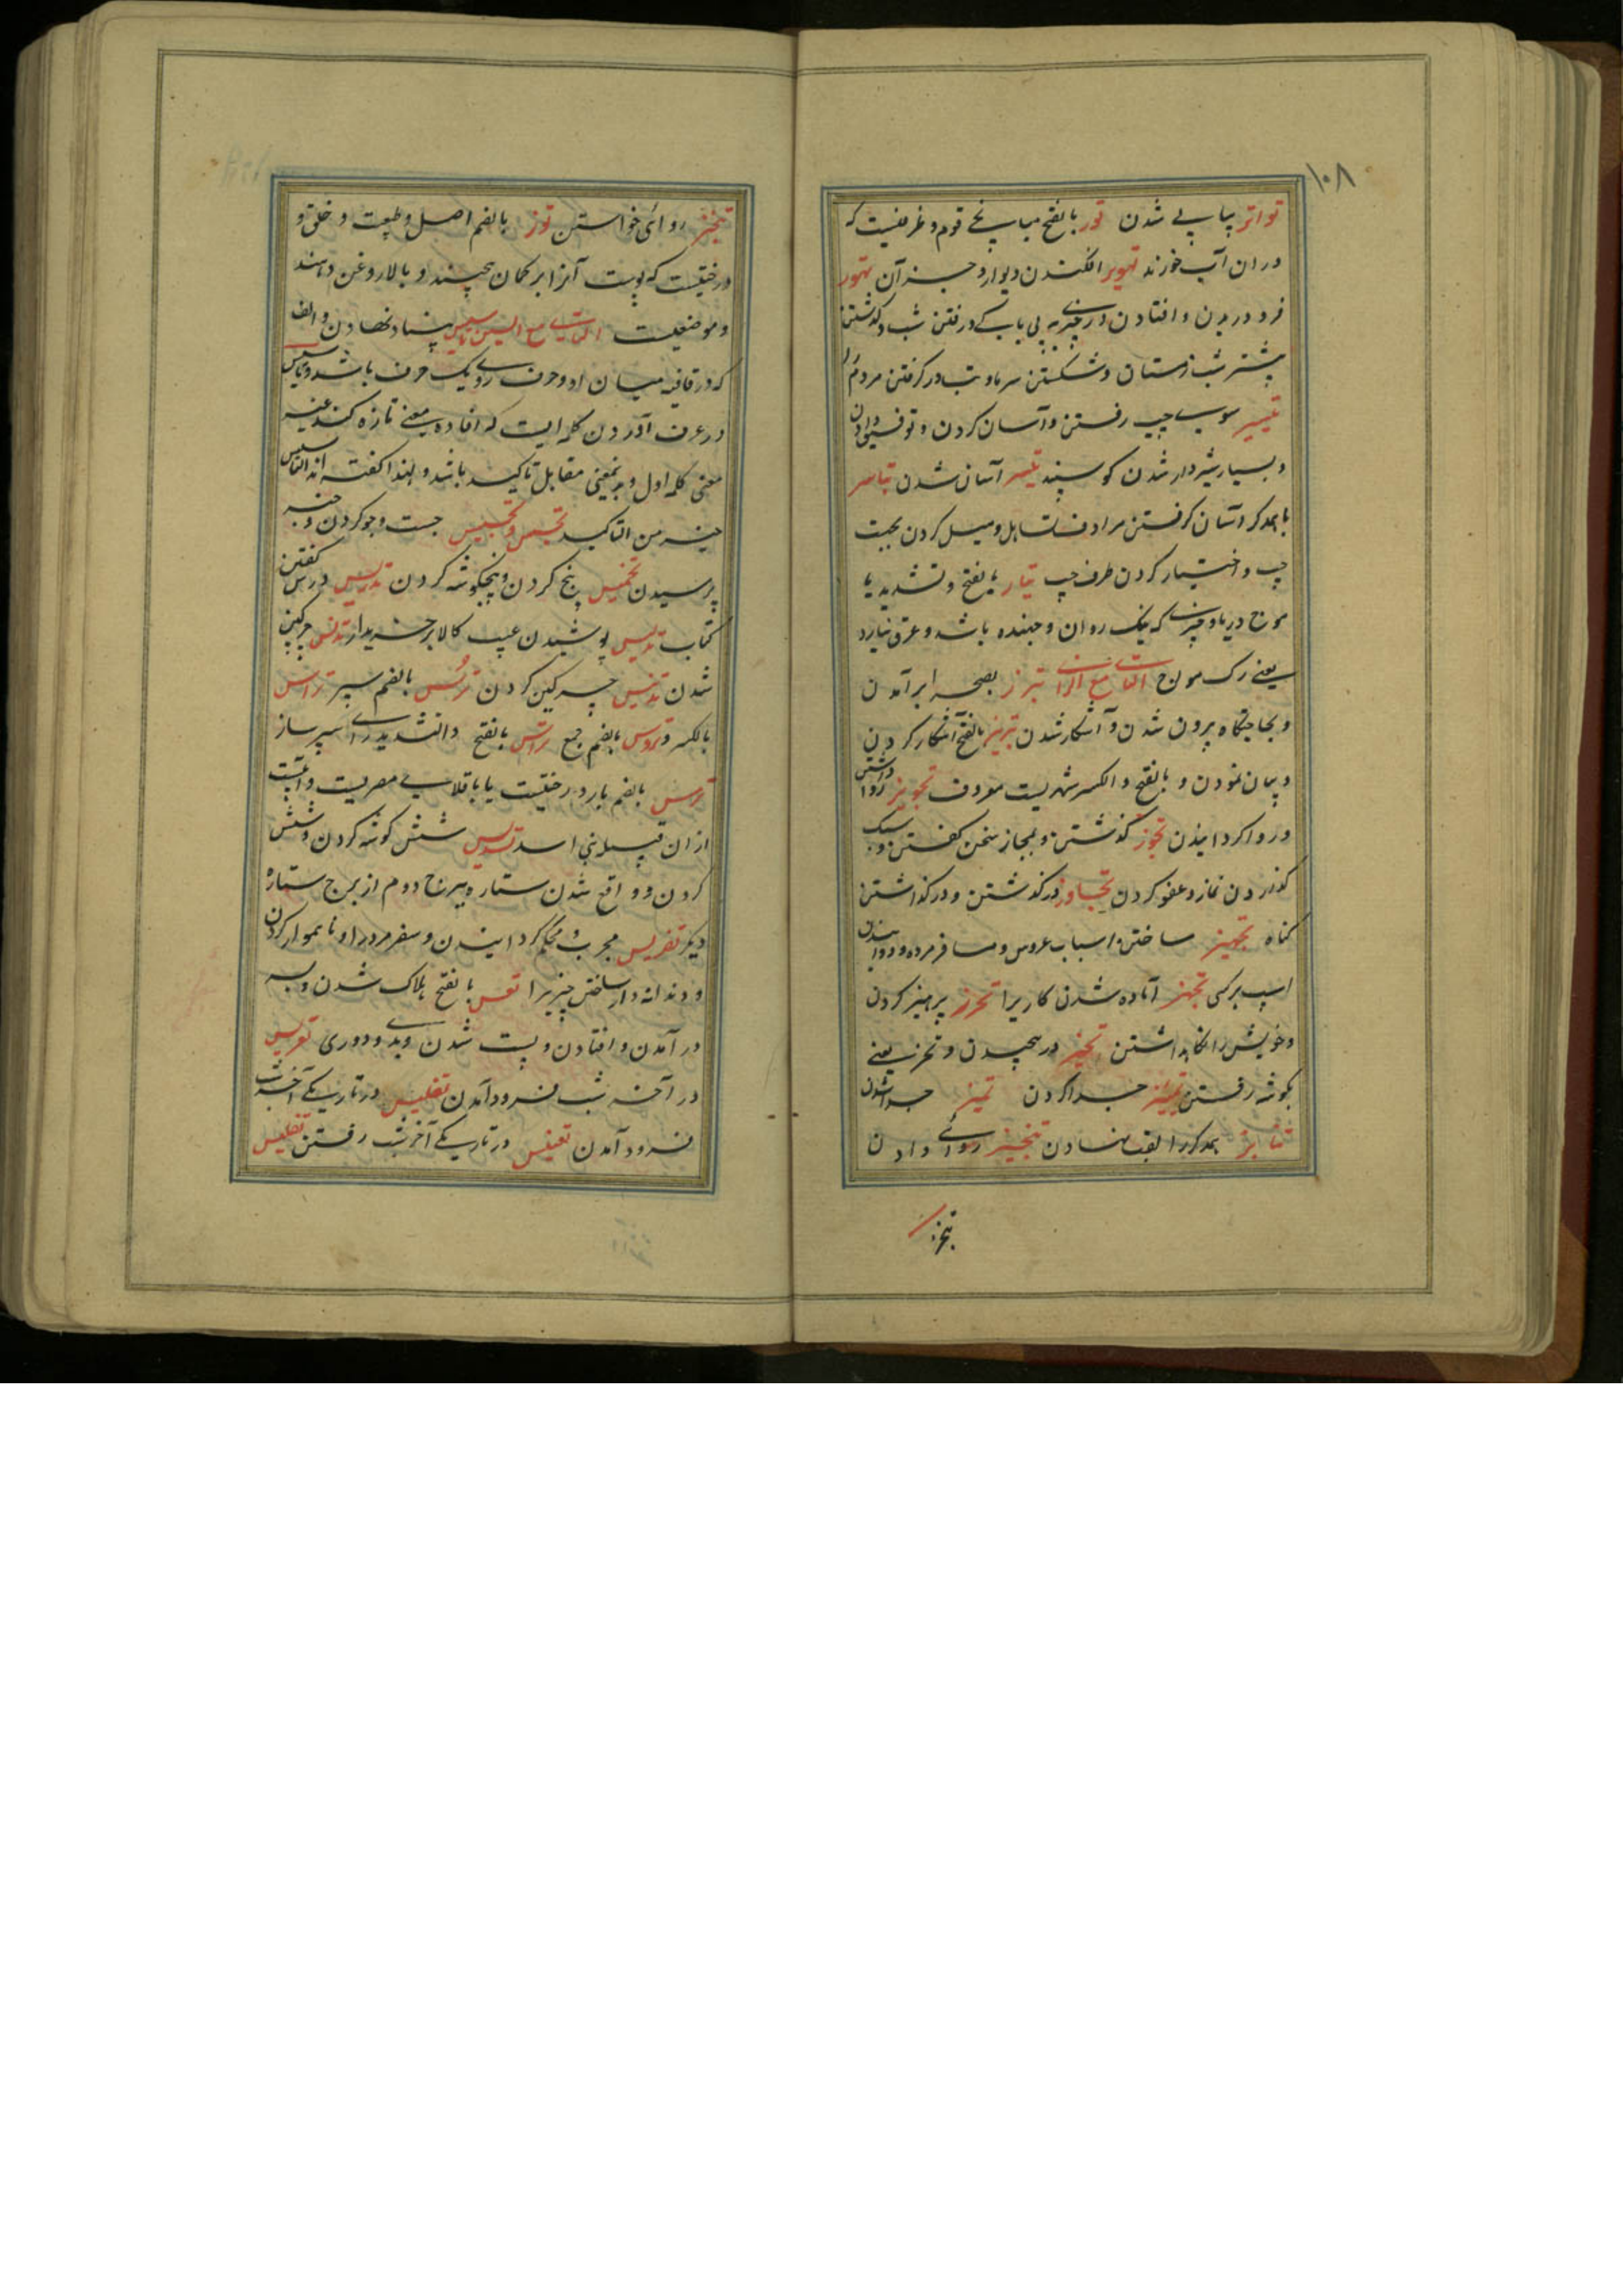 ۱۰۸
تواتر پیاپی شدن تور بالفتح میانجی قوم و ظرفیست که
دران آب خورند تهویر افکندن دیوار و جز آن تهور
فرو دریدن و افتادن در چیزی به بی باکی و رفتن شب و گذشتن
بیشتر شب زمستان و شکستن سرما و تب در گرفتن مردم را
تیسیر سوی چپ رفتن و آسان کردن و توفیق دادن
و بسیار شیردار شدن کوسپند تیسر آسان شدن تیاسر
با همدکر آسان کرفتن مرادف تساهل و میل کردن بجهت
چپ و اختیار کردن طرف چپ تیار بالفتح و تشدید یا
موج دریا و چیزی که نیک روان و جهنده باشد و عرق نیارد
یعنی رک موج التاء مع الزای تبرز بصحرا برآمدن
و بحاجتگاه بیرون شدن و آشکار شدن تبریز بالفتح آشکار کردن
و بیان نمودن و بالفتح و الکسر شهریست معروف تجویز روا داشتن
و روا کردانیدن تجوز گذشتن و بمجاز سخن کفتن و سبک
کذاردن نماز و عفو کردن تجاوز درکذشتن و درکذاشتن
کناه تجهیز ساختن اسباب عروس و مسافر و مرده و دوانیدن
اسب برکسی تجهز آماده شدن کاریرا تحرز پرهیز کردن
و خویش را نکاهداشتن تحیز درپیچیدن و تحرف یعنی
بکوشه رفتن تمییز جدا کردن تمیز جدا شدن
تنابز همدکر را لقب نهادن تنجیز روائی دادن
تنجز
تنجز روائی خواستن توز بالضم اصل و طبیعت و خلق و
درختیست که پوست آنرا بر کمان پیچند و بالا روغن دهند
و موضعیست التاء مع السین تاسیس بنیاد نهادن و الف
که در قافیه میان او و حرف روی یک حرف باشد و تاسیس
در عرف آوردن کلمه ایست که افاده معنی تازه کند غیر
معنی کلمه اول و بدینمعنی مقابل تاکید باشد و لهذا کفته اند التاسیس
خیر من التاکید تجسس و تجسیس جست و جو کردن و خبر
پرسیدن تخمیس پنج کردن و پنجکوشه کردن تدریس درس کفتن
کتاب تدلیس پوشیدن عیب کالا بر خریدار تدنس چرکین
شدن تدنیس چرکین کردن ترس بالضم سپر تراس
بالکسر و تروس بالضم جمع تراس بالفتح و التشدید رای سپر ساز
ترمس بالضم بار درختیست یا باقلای مصریست و آبیست
ازان قبیله بنی اسد تسدیس شش کوشه کردن و شش
کردن و واقع شدن ستاره ببرج دوم از برج ستاره
دیکر تضریس مجرب و محکم کردانیدن و سفر مرد را و ناهموار کردن
و دندانه دار ساختن چیزیرا تعس بالفتح هلاک شدن و بسر
در آمدن و افتادن و پست شدن و بدی و دوری تعریس
در آخر شب فرود آمدن تغلیس در تاریکی آخر شب
فرود آمدن تغلیس در تاریکی آخر شب رفتن تفلیس